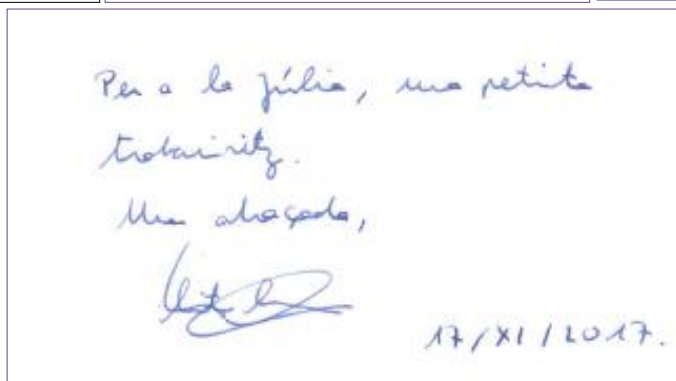 Per a la Júlia, una petita
trobairitz.
Una abraçada,
17/XI/2017.